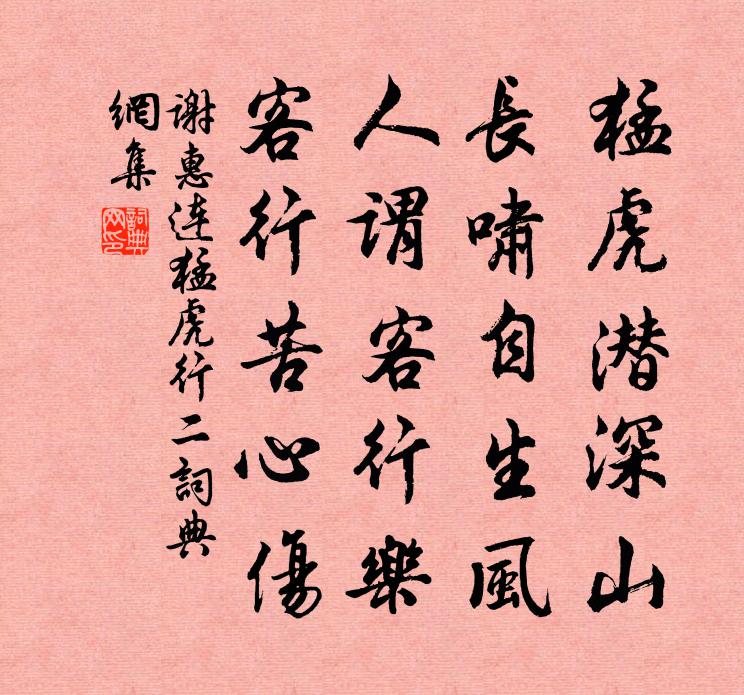 猛虎潜深山
長嘯自生風
人謂客行樂
客行苦心傷
謝惠連猛虎行二詞典
網集
詞典
网印